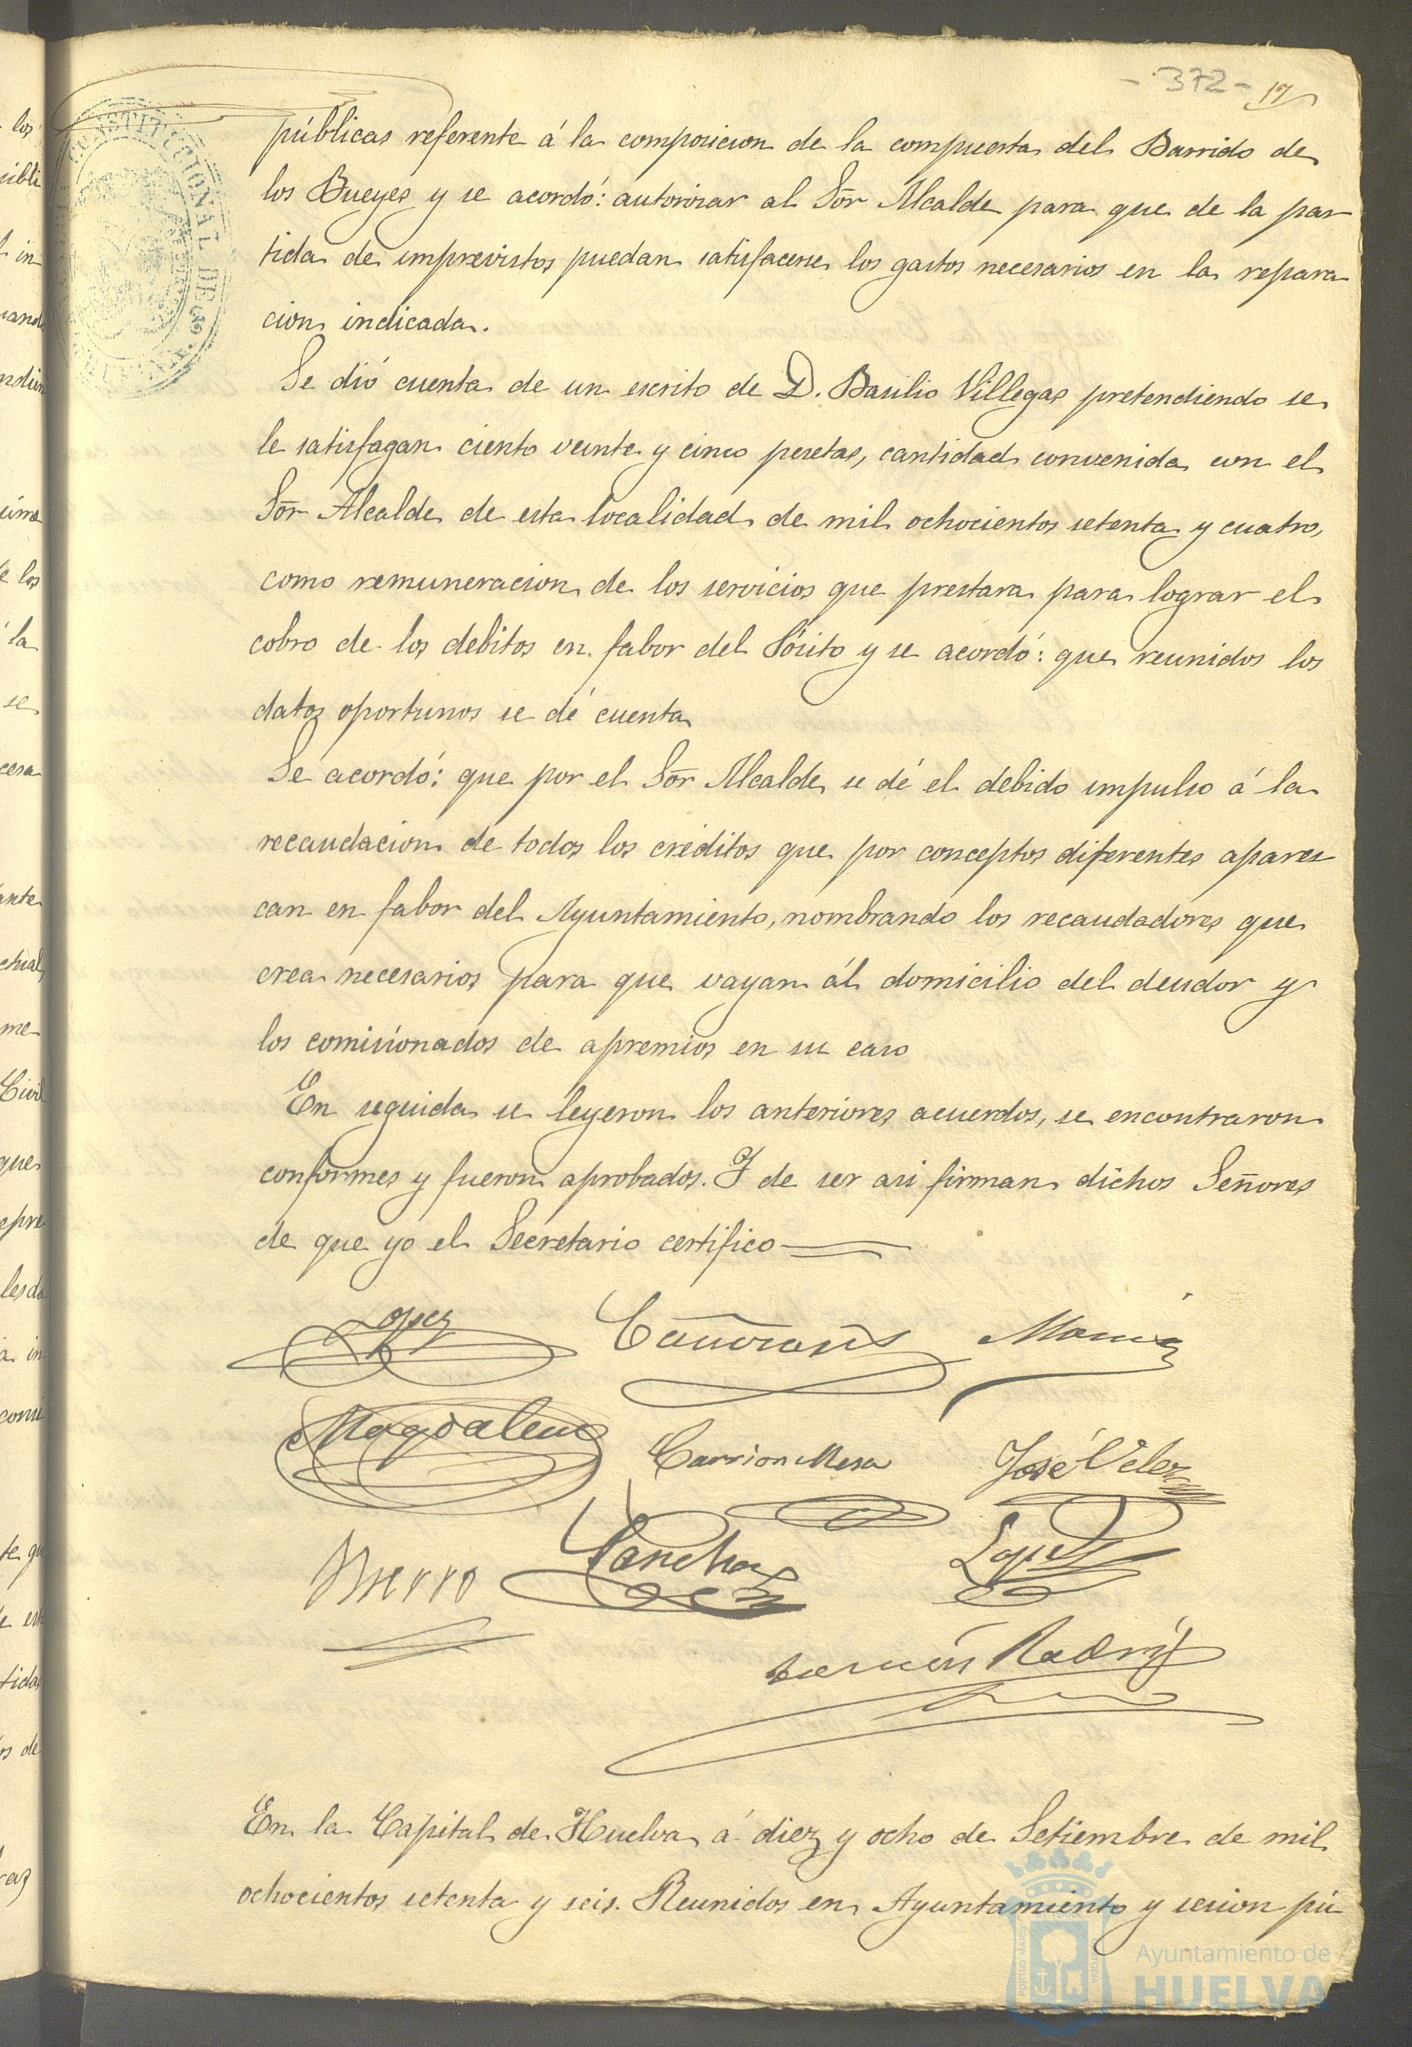 - 372 - 17
públicas referente á la composicion de la compuerta del Barrido de
los Bueyes y se acordó: autorizar al Sōr Alcalde para que de la par
tida de imprevistos puedan satisfacerse los gastos necesarios en la repara
cion indicada.
Se dió cuenta de un escrito de D. Basilio Villegas pretendiendo se
le satisfagan ciento veinte y cinco pesetas, cantidad convenida con el
Sōr Alcalde de esta localidad de mil ochocientos setenta y cuatro,
como remuneracion de los servicios que prestara para lograr el
cobro de los debitos en fabor del Pósito y se acordó: que reunidos los
datos oportunos se dé cuenta
Se acordó: que por el Sōr Alcalde se dé el debido impulso á la
recaudacion de todos los créditos que por conceptos diferentes aparez
can en fabor del Ayuntamiento, nombrando los recaudadores que
crea necesarios para que vayan ál domicilio del deudor y
los comisionados de apremios en su caso
En seguida se leyeron los anteriores acuerdos, se encontraron
conformes y fueron aprobados. Y de ser asi firman dichos Señores
de que yo el Secretario certifico
Lopez
Magdalena Carrion Mesa José Velez
Sanchez Lopez
En la Capital de Huelva á diez y ocho de Setiembre de mil
ochocientos setenta y seis. Reunidos en Ayuntamiento y sesion pú
CONSTITUCIONAL DE
Ayuntamiento de
HUELVA